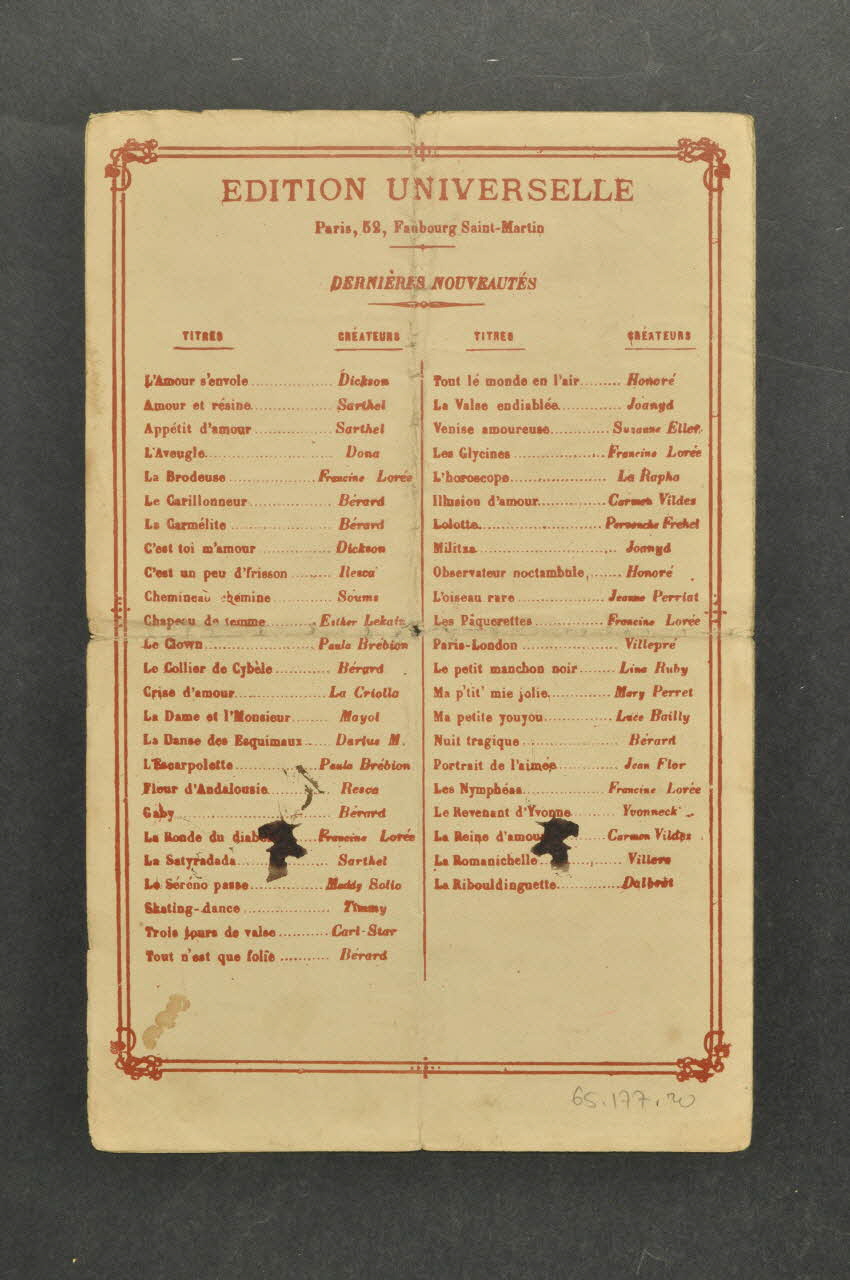 EDITION UNIVERSELLE
Paris, 52, Faubourg Saint-Martin
DERNIÈRES NOUVEAUTÉS
TITRES CRÉATEURS
L'Amour s'envole Dickson
Amour et résine Sarthel
Appétit d'amour Sarthel
L'Aveugle Dona
La Brodeuse Francine Lorée
Le Carillonneur Bérard
La Carmélite Bérard
C'est toi m'amour Dickson
C'est un peu d'frisson Resca
Chemineau chemine Soums
Chapeau de femme Esther Lekain
Le Clown Paula Brébion
Le Collier de Cybèle Bérard
Crise d'amour La Criolla
La Dame et l'Monsieur Mayol
La Danse des Esquimaux Darius M.
L'Escarpolette Paula Brébion
Fleur d'Andalousie Resca
Gaby Bérard
La Ronde du Francine Lorée
La Satyradada Sarthel
Le Séréno passe Maddy Solio
Skating-dance Timmy
Trois jours de valse Carl-Star
Tout n'est que folie Bérard
TITRES CRÉATEURS
Tout le monde en l'air Honoré
La Valse endiablée Joanyd
Venise amoureuse Suzanne Eller
Les Glycines Francine Lorée
L'horoscope La Rapha
Illusion d'amour Carmen Vildez
Lolotte Pervenche Frehel
Militza Joanyd
Observateur noctambule, Honoré
L'oiseau rare Jeanne Perriat
Les Pâquerettes Francine Lorée
Paris-London Villepré
Le petit manchon noir Lina Ruby
Ma p'tit' mie jolie Mary Perret
Ma petite youyou Luce Bailly
Nuit tragique Bérard
Portrait de l'aimée Jean Flor
Les Nymphéas Francine Lorée
Le Revenant d'Yvonne Yvonneck
La Reine d'amour Carmen Vildez
La Romanichelle Villers
La Ribouldinguette Dalbret
65.177.20